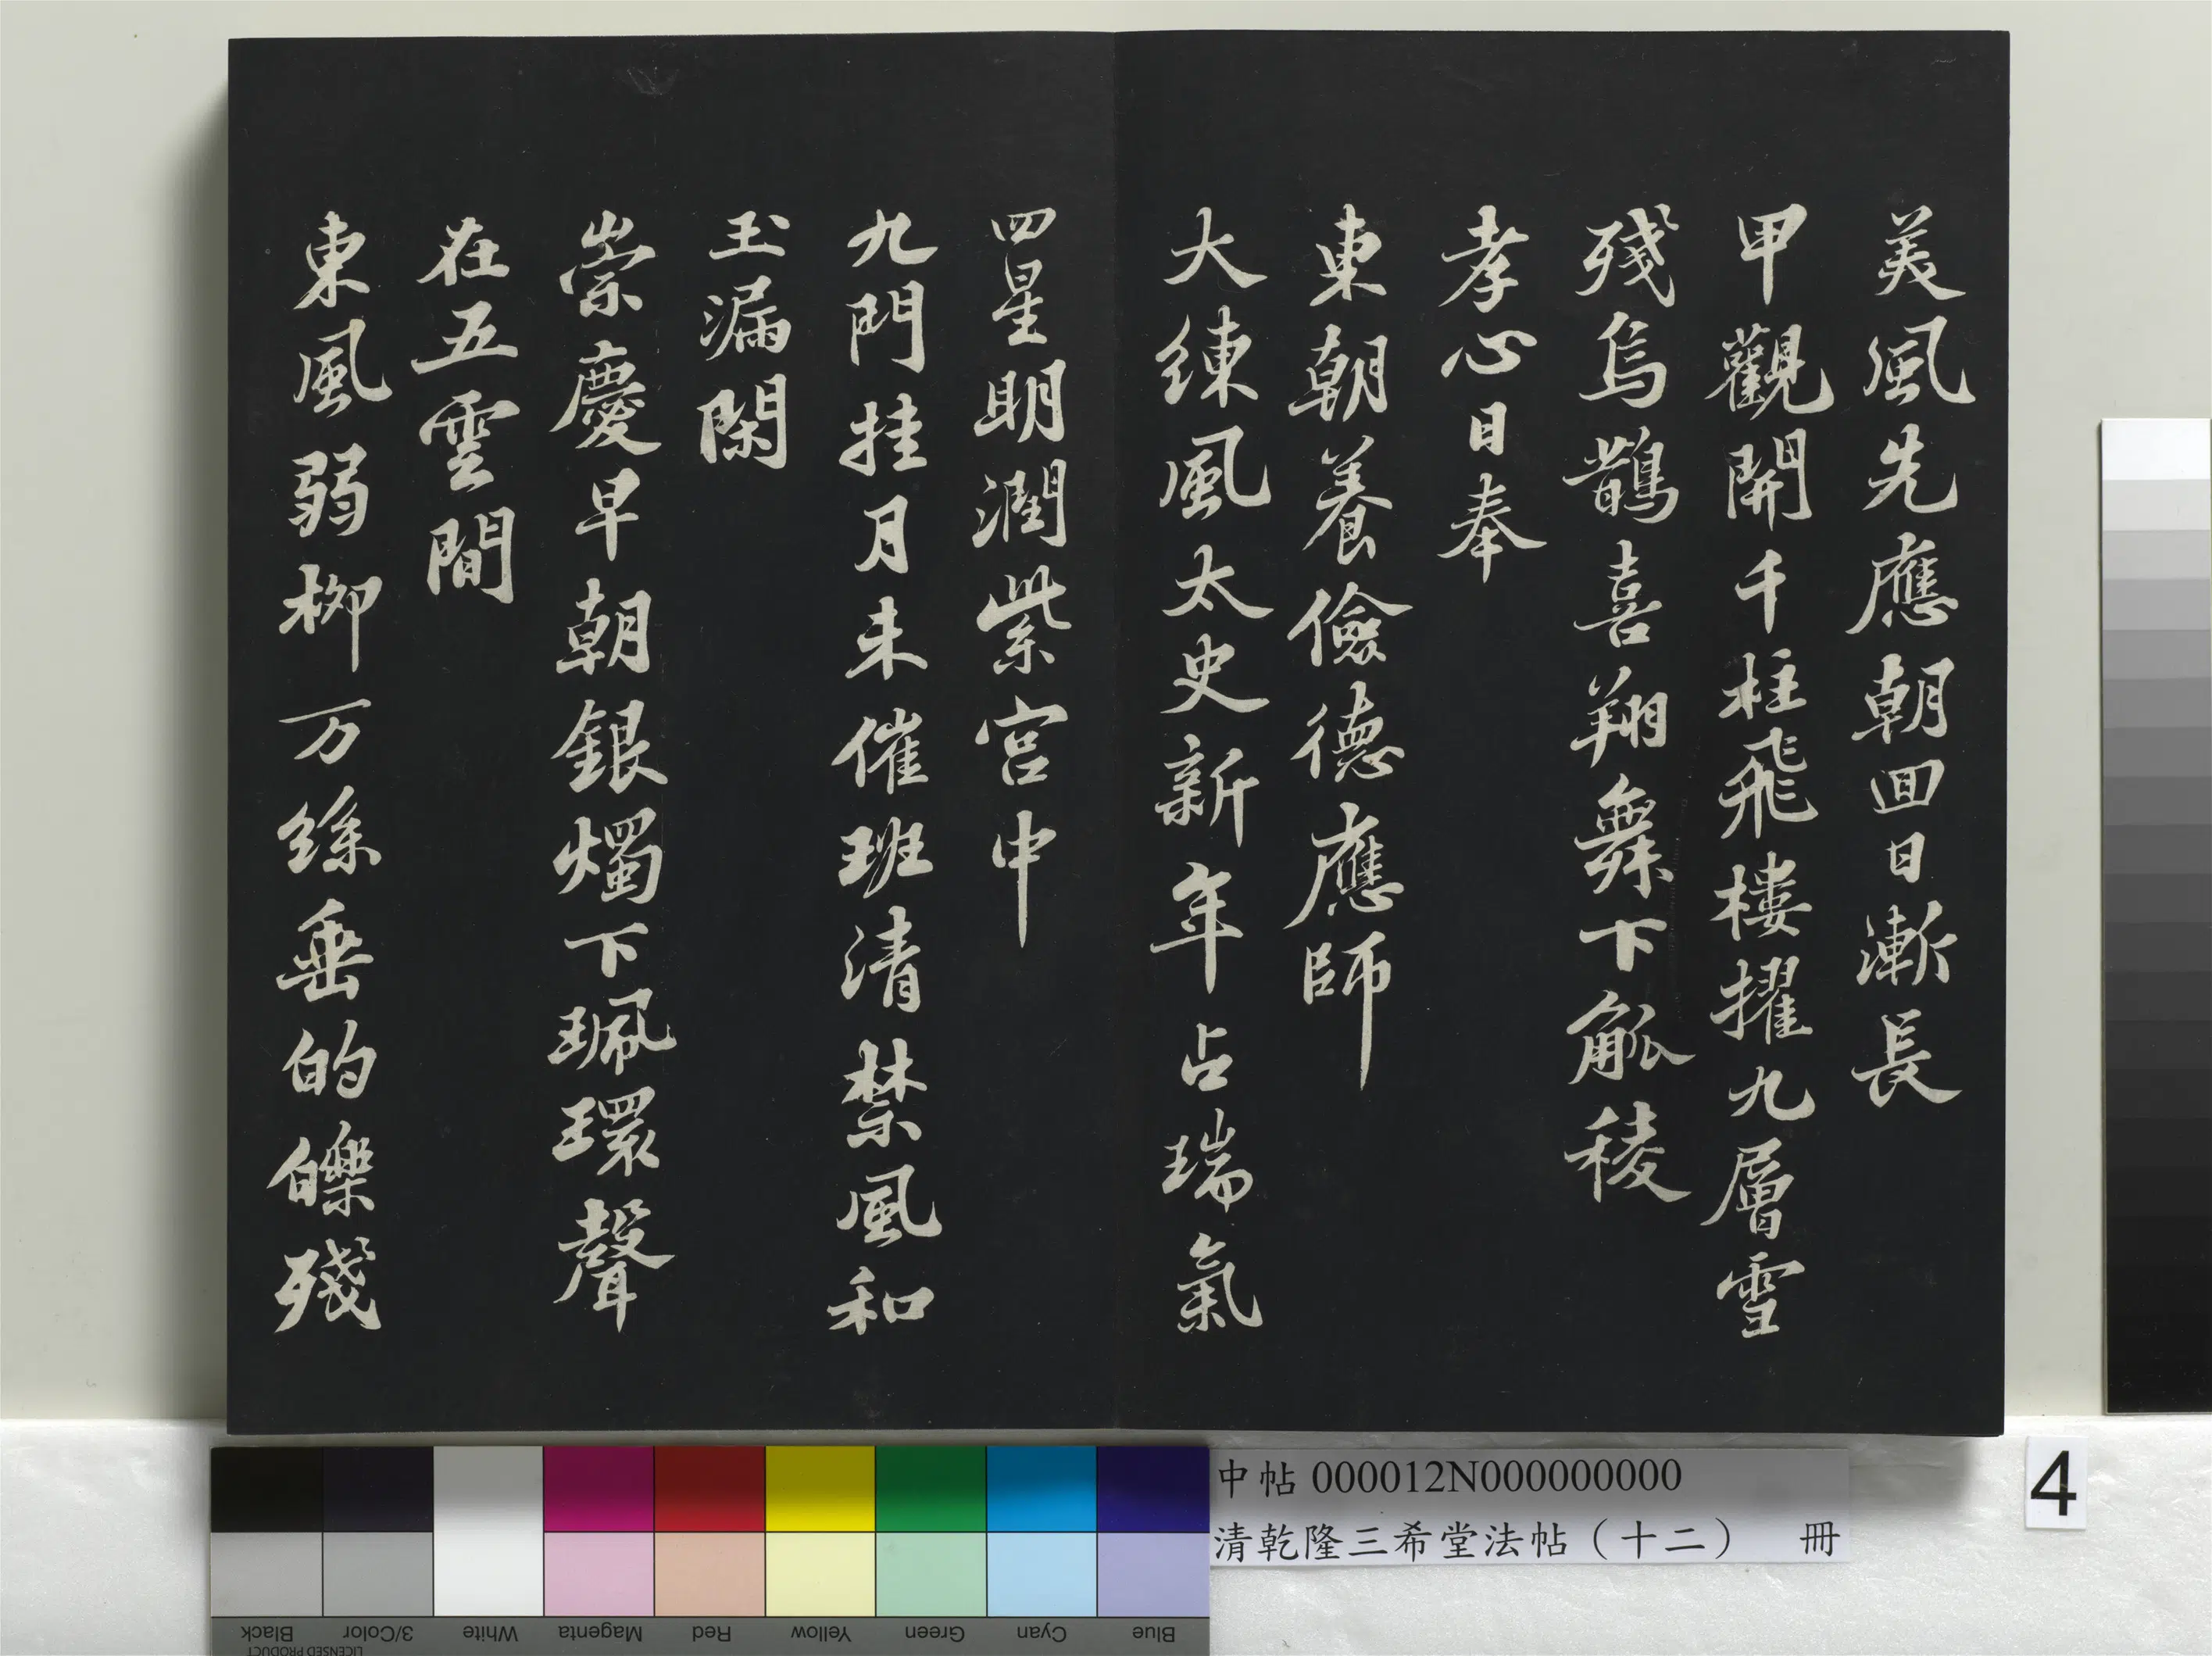 美風先應朝回日漸長
甲觀開千柱飛樓擢九層雪
殘烏鵲喜翔舞下觚稜
孝心日奉
東朝養儉德應師
大練風太史新年占瑞氣
四星明潤紫宮中
九門挂月未催班清禁風和
玉漏閑
崇慶早朝銀燭下珮環聲
在五雲間
東風弱柳万絲垂的皪殘
中帖 000012N000000000
清乾隆三希堂法帖（十二） 冊
4
Black 3/Color White Magenta Red Yellow Green Cyan Blue
LICENSED PRODUCT